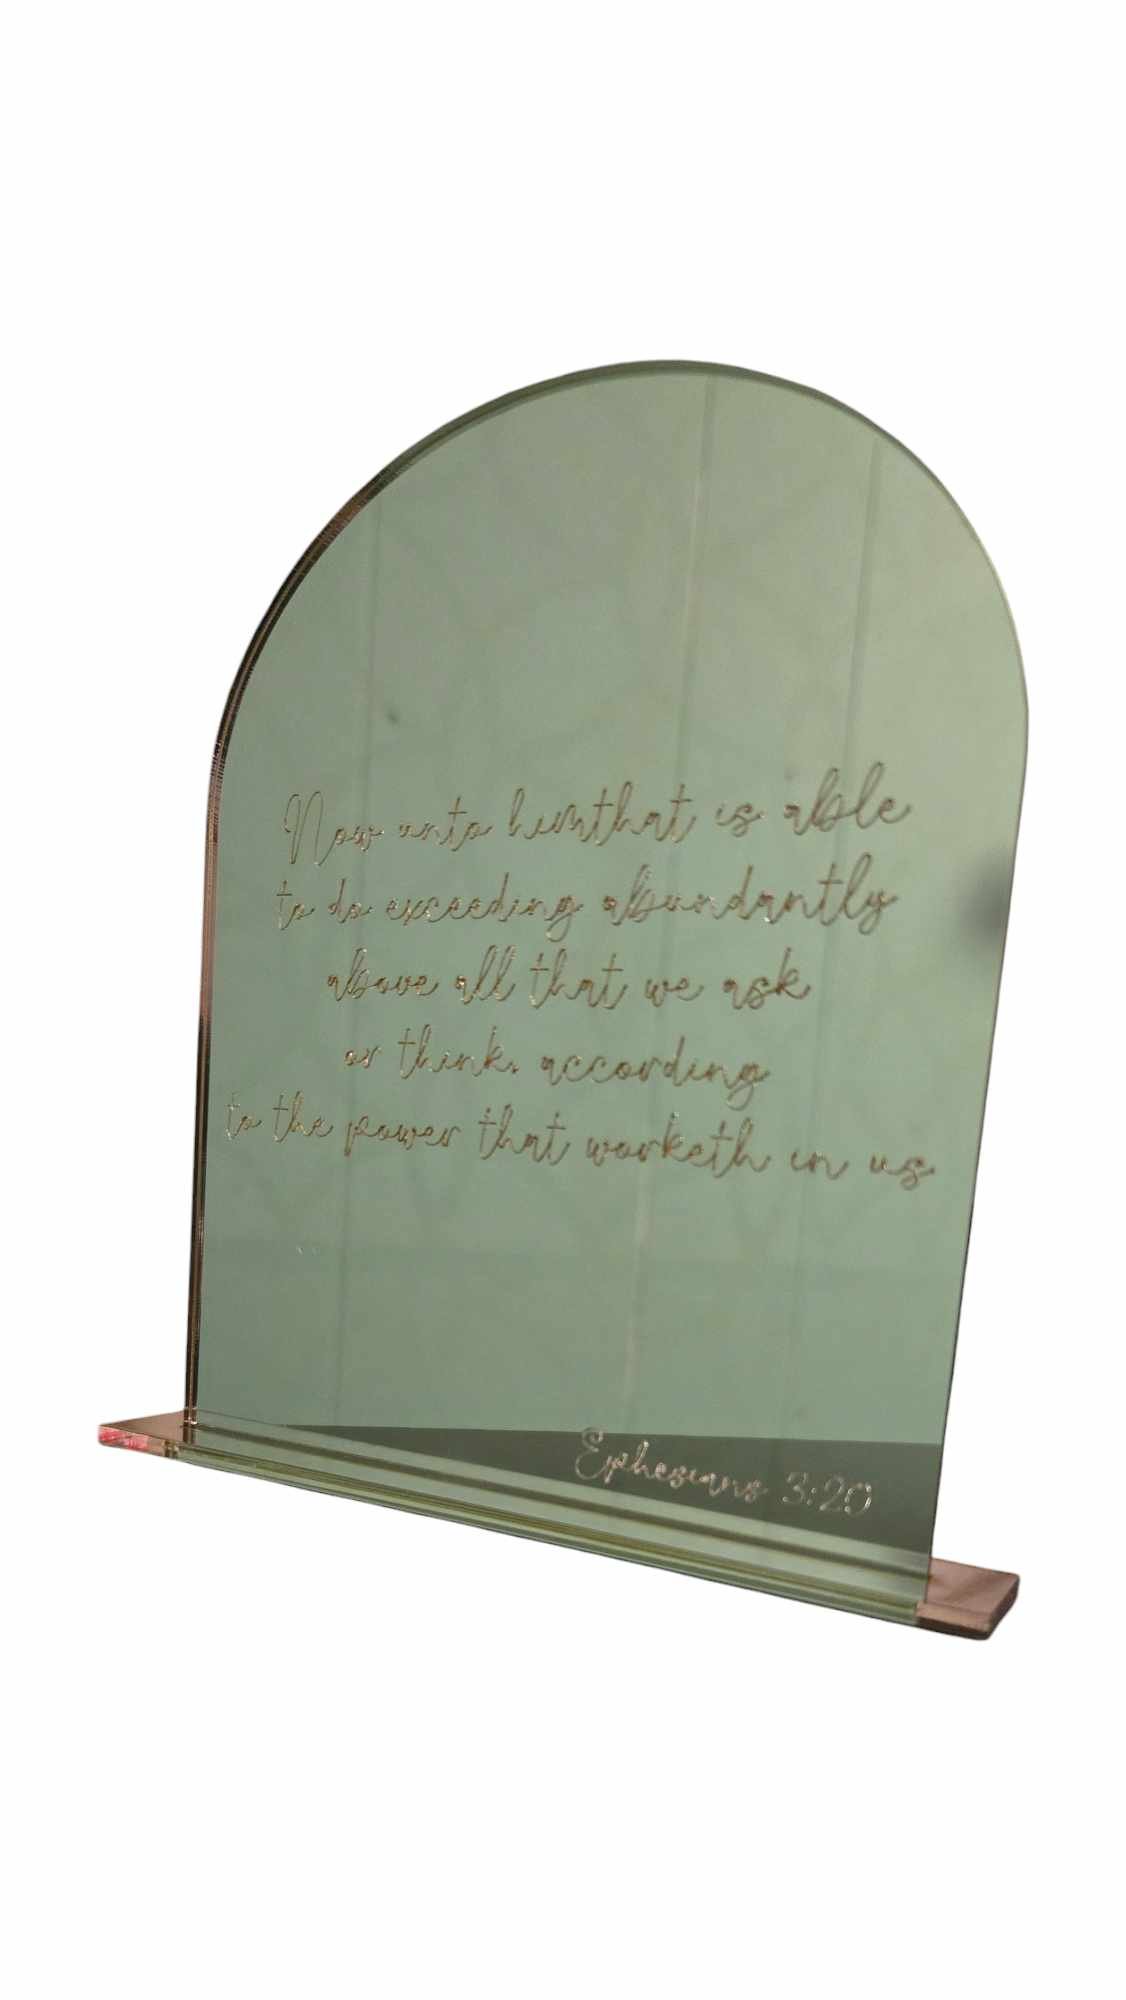 Now unto himthat is able
to do exceeding abundantly
above all that we ask
or think, according
to the power that worketh in us
Ephesians 3:20